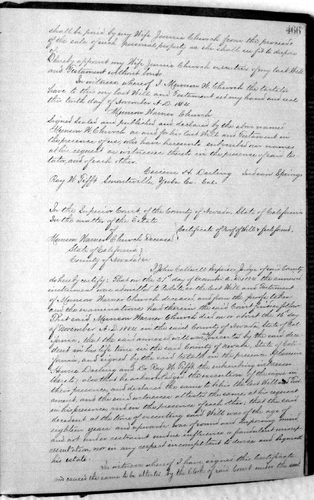 466
shall be paid by my Wife Jennie Church from the proceeds
of the sale of such personal property as she shall see fit to dispose
of.
I hereby appoint my Wife Jennie Church executrix of my last Will
and Testament without bonds.
In witness whereof I Munson W. Church the testator
have to this my last Will and Testament set my hand and seal
this tenth day of November A.D. 1884
Munson Warner Church
Signed sealed and published and declared by the above named
Munson W. Church as and for his last Will and Testament in
the presence of us, who have hereunto subscribed our names
at his request as witnesses thereto in the presence of said tes-
tator, and of each other.
Darling Indian Springs
Ray W. Tifft Smartsville, Yuba Co. Cal.
In the Superior Court of the County of Nevada, State of California
In the matter of the Estate
of
Munson Warner Church Deceased
Certificate of Proof of Will
State of California
County of Nevada
I, John Caldwell Superior Judge of said County
do hereby certify: That on the day of
was admitted to Probate as the last Will and Testament
of Munson Warner Church deceased and from the proofs taken
and the examination had therein the said Court finds as follows
That said Munson Warner Church died on or about the
of November A.D. 1884 in the said County of Nevada, State of Cal-
ifornia, that the said annexed will was
dent in his life time in the said County of Nevada, State of Cal-
ifornia, and signed by the said testator in the presence of
Darling and Ray W. Tifft the subscribing witnesses
thereto
their presence, and declared the same to be his last Will and Testa-
ment, and the said witnesses attested the same at his request
in his presence, and in the presence of each other, that the said
decedent at the time of executing said Will was of the age of
eighteen years and upwards was of sound and disposing mind
and not under restraint undue influence or fraudulent misrepre-
sentation, nor in any respect incompetent to devise and bequeath
his estate.
In witness whereof I have signed this Certificate
and caused the same to be attested by the Clerk of said Court under the seal